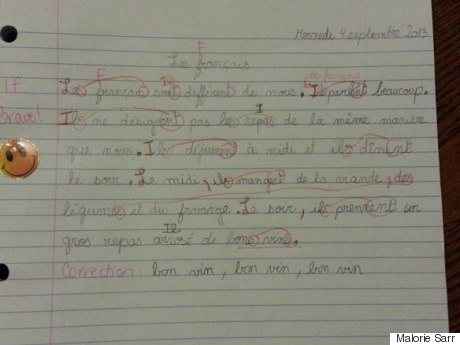 Mercredi 4 septembre 2013
F
Les français
F Il les français
If Les français sont différents de nous. Ils parlent beaucoup.
Bravo! Ils ne désignent pas les repas de la même manière
I
que nous. Ils déjeunent à midi et ils dînent
le soir. Le midi, ils mangent de la viande, des
légumes et du fromage. Le soir, ils prennent un
Il
gros repas arrosé de bons vins.
Correction: bon vin, bon vin, bon vin
Malorie Sarr